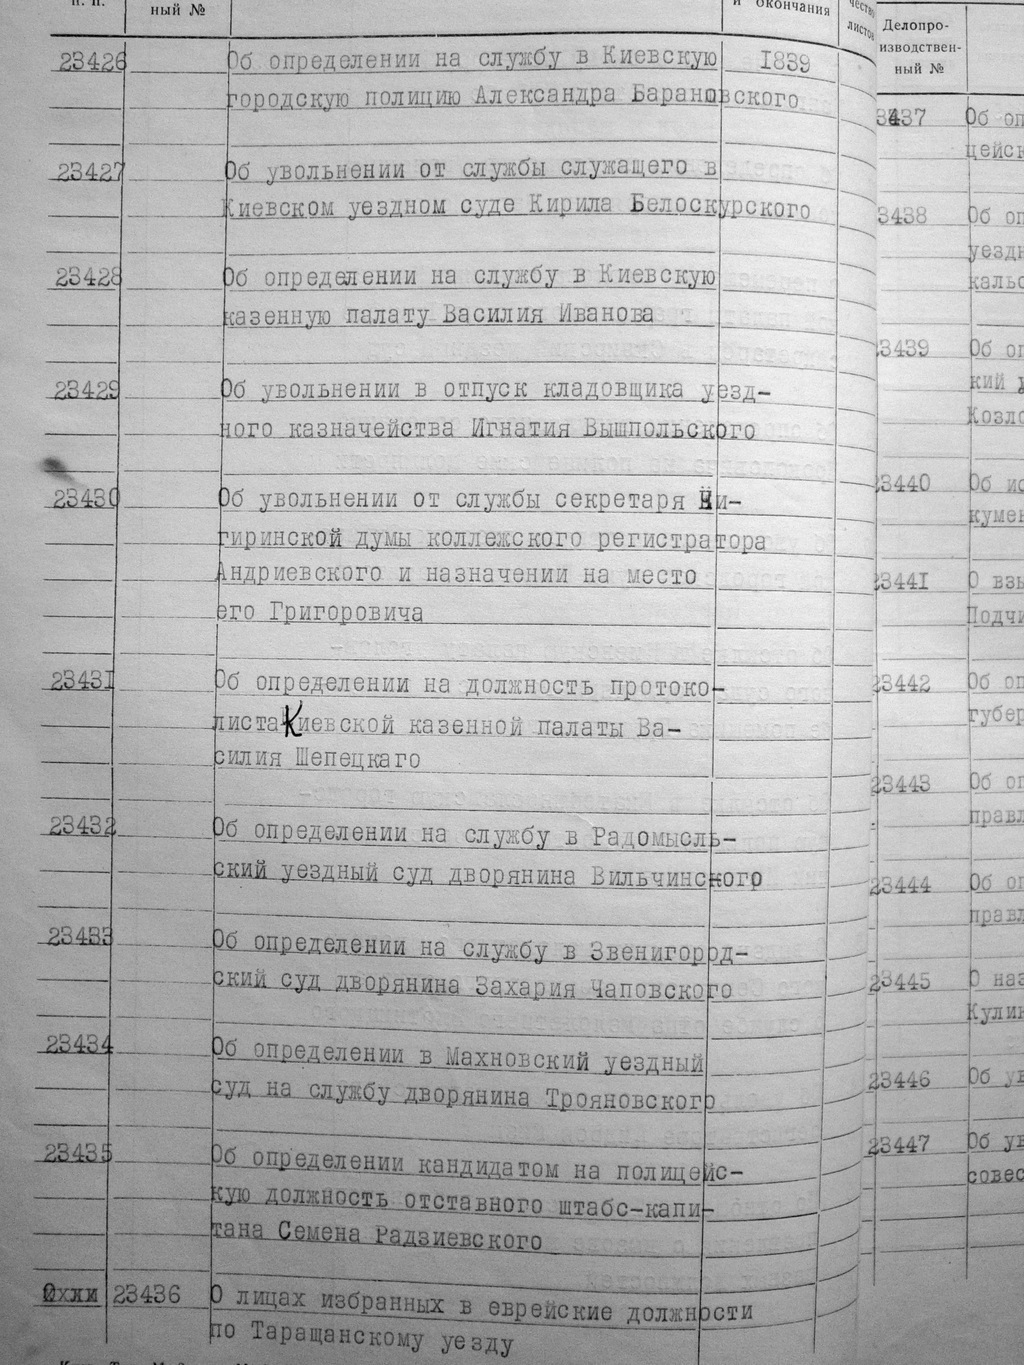 п. п.
ный №
и окончания
чество
листов
23426 Об определении на службу в Киевскую 1839
городскую полицию Александра Барановского
23427 Об увольнении от службы служащего в
Киевском уездном суде Кирила Белоскурского
23428 Об определении на службу в Киевскую
казенную палату Василия Иванова
23429 Об увольнении в отпуск кладовщика уезд-
ного казначейства Игнатия Вышпольского
23430 Об увольнении от службы секретаря Чи-
гиринской думы коллежского регистратора
Андриевского и назначении на место
его Григоровича
23431 Об определении на должность протоко-
листа Киевской казенной палаты Ва-
силия Шепецкаго
23432 Об определении на службу в Радомысль-
ский уездный суд дворянина Вильчинского
23433 Об определении на службу в Звенигород-
ский суд дворянина Захария Чаповского
23434 Об определении в Махновский уездный
суд на службу дворянина Трояновского
23435 Об определении кандидатом на полицейс-
кую должность отставного штабс-капи-
тана Семена Радзиевского
23436 О лицах избранных в еврейские должности
по Таращанскому уезду
Делопро-
изводствен-
ный №
3437 Об оп
цейск
3438 Об оп
уездн
кальс
3439 Об оп
кий у
Козло
23440 Об ис
кумен
23441 О взы
Подчи
23442 Об оп
губер
23443 Об оп
правл
23444 Об оп
правл
23445 О наз
Кулин
23446 Об ув
23447 Об ув
совес